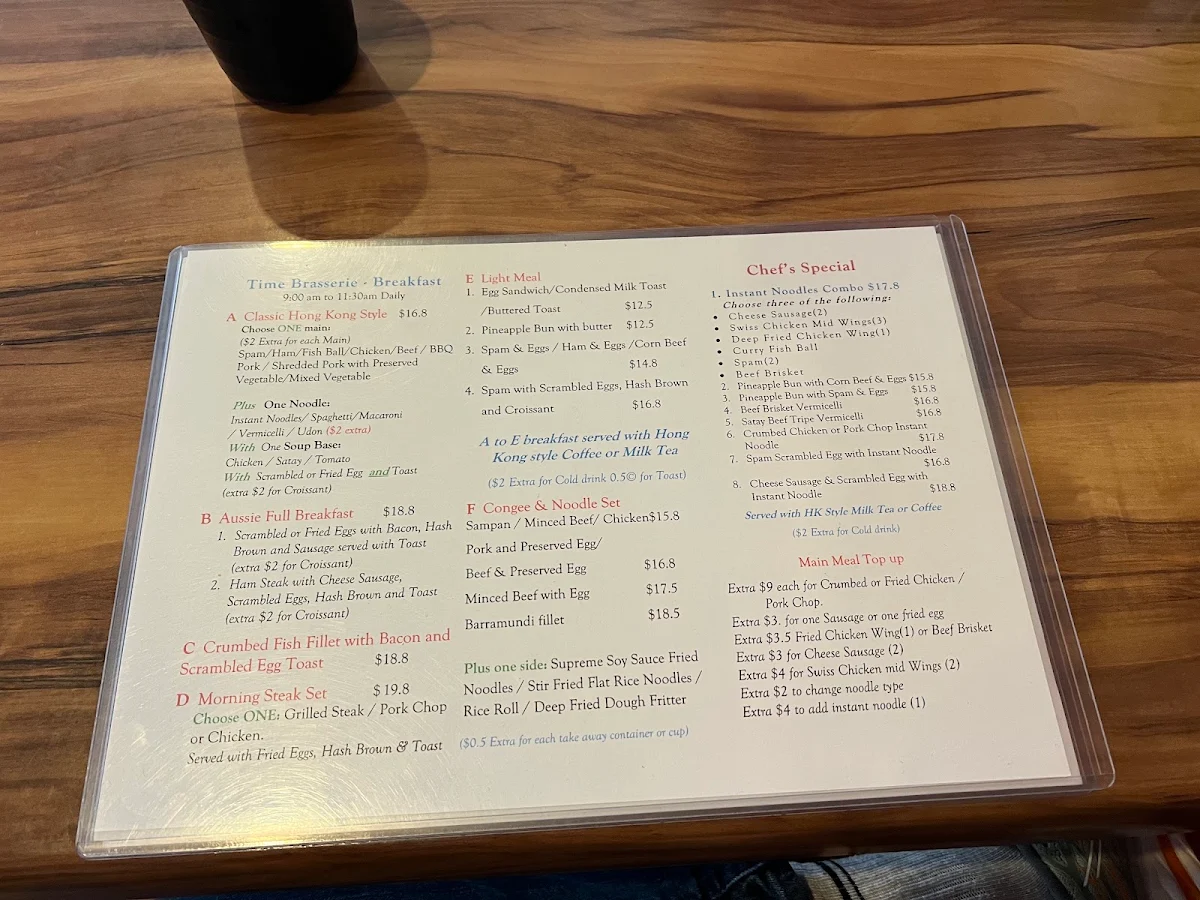 Time Brasserie - Breakfast
9:00 am to 11:30am Daily
A Classic Hong Kong Style $16.8
Choose ONE main:
($2 Extra for each Main)
Spam/Ham/Fish Ball/Chicken/Beef / BBQ
Pork / Shredded Pork with Preserved
Vegetable/Mixed Vegetable
Plus One Noodle:
Instant Noodles/ Spaghetti/Macaroni
/ Vermicelli / Udon ($2 extra)
With One Soup Base:
Chicken / Satay / Tomato
With Scrambled or Fried Egg and Toast
(extra $2 for Croissant)
B Aussie Full Breakfast $18.8
1. Scrambled or Fried Eggs with Bacon, Hash
Brown and Sausage served with Toast
(extra $2 for Croissant)
2. Ham Steak with Cheese Sausage,
Scrambled Eggs, Hash Brown and Toast
(extra $2 for Croissant)
C Crumbed Fish Fillet with Bacon and
Scrambled Egg Toast $18.8
D Morning Steak Set $19.8
Choose ONE: Grilled Steak / Pork Chop
or Chicken.
Served with Fried Eggs, Hash Brown & Toast
E Light Meal
1. Egg Sandwich/Condensed Milk Toast
/Buttered Toast $12.5
2. Pineapple Bun with butter $12.5
3. Spam & Eggs / Ham & Eggs /Corn Beef
& Eggs $14.8
4. Spam with Scrambled Eggs, Hash Brown
and Croissant $16.8
A to E breakfast served with Hong
Kong style Coffee or Milk Tea
($2 Extra for Cold drink 0.5© for Toast)
F Congee & Noodle Set
Sampan / Minced Beef/ Chicken$15.8
Pork and Preserved Egg/
Beef & Preserved Egg $16.8
Minced Beef with Egg $17.5
Barramundi fillet $18.5
Plus one side: Supreme Soy Sauce Fried
Noodles / Stir Fried Flat Rice Noodles /
Rice Roll / Deep Fried Dough Fritter
($0.5 Extra for each take away container or cup)
Chef's Special
1. Instant Noodles Combo $17.8
Choose three of the following:
• Cheese Sausage(2)
• Swiss Chicken Mid Wings(3)
• Deep Fried Chicken Wing(1)
• Curry Fish Ball
• Spam(2)
• Beef Brisket
2. Pineapple Bun with Corn Beef & Eggs $15.8
3. Pineapple Bun with Spam & Eggs $15.8
4. Beef Brisket Vermicelli $16.8
5. Satay Beef Tripe Vermicelli $16.8
6. Crumbed Chicken or Pork Chop Instant
Noodle $17.8
7. Spam Scrambled Egg with Instant Noodle
$16.8
8. Cheese Sausage & Scrambled Egg with
Instant Noodle $18.8
Served with HK Style Milk Tea or Coffee
($2 Extra for Cold drink)
Main Meal Top up
Extra $9 each for Crumbed or Fried Chicken /
Pork Chop.
Extra $3. for one Sausage or one fried egg
Extra $3.5 Fried Chicken Wing(1) or Beef Brisket
Extra $3 for Cheese Sausage (2)
Extra $4 for Swiss Chicken mid Wings (2)
Extra $2 to change noodle type
Extra $4 to add instant noodle (1)